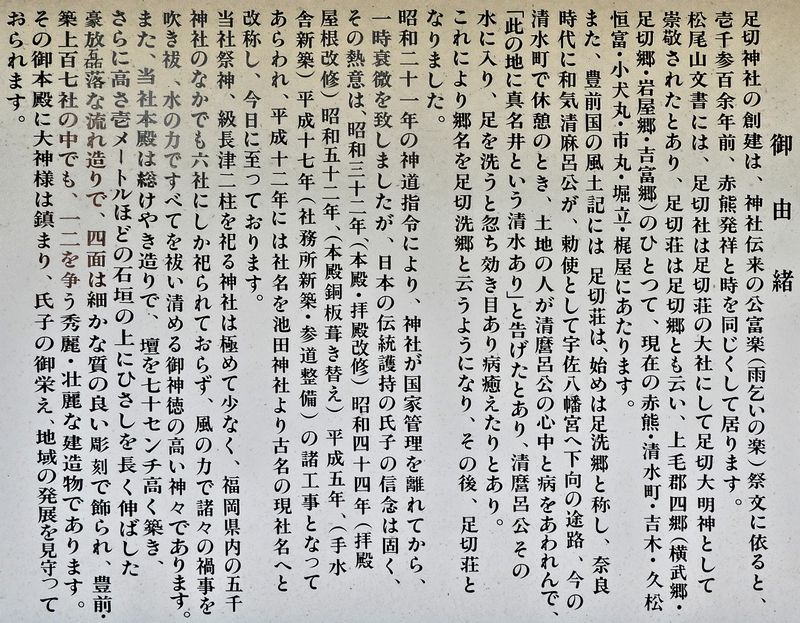 御由緒
足切神社の創建は、神社伝来の公富楽(雨乞いの楽)祭文に依ると、
壱千参百余年前、赤熊発祥と時を同じくして居ります。
松尾山文書には、足切社は足切荘の大社にして足切大明神として
崇敬されたとあり、足切荘は足切郷とも云い、上毛郡四郷(横武郷・
足切郷・岩屋郷・吉富郷)のひとつて、現在の赤熊・清水町・吉木・久松
恒富・小犬丸・市丸・堀立・梶屋にあたります。
また、豊前国の風土記には 足切荘は、始めは足洗郷と称し、奈良
時代に和気清麻呂公が、勅使として宇佐八幡宮へ下向の途路、今の
清水町で休憩のとき、土地の人が清麿呂公の心中と病をあわれんで、
「此の地に真名井という清水あり」と告げたとあり、清麿呂公 その
水に入り、足を洗うと忽ち効き目あり病癒えたりとあり。
これにより郷名を足切洗郷と云うようになり、その後、足切荘と
なりました。
昭和二十一年の神道指令により、神社が国家管理を離れてから、
一時衰微を致しましたが、日本の伝統護持の氏子の信念は固く、
その熱意は 昭和三十二年、(本殿・拝殿改修) 昭和四十四年 (拝殿
屋根改修) 昭和五十二年、(本殿銅板葺き替え) 平成五年、(手水
舎新築) 平成十七年 (社務所新築・参道整備) の諸工事となって
あらわれ、平成十二年には社名を池田神社より古名の現社名へと
改称し、今日に至っております。
当社祭神、級長津二柱を祀る神社は極めて少なく、福岡県内の五千
神社のなかでも六社にしか祀られておらず、風の力で諸々の禍事を
吹き祓、水の力ですべてを祓い清める御神徳の高い神々であります。
また、当社本殿は総けやき造りで、壇を七十センチ高く築き、
さらに高さ壱メートルほどの石垣の上にひさしを長く伸ばした
豪放磊落な流れ造りで、四面は細かな質の良い彫刻で飾られ、豊前・
築上百七社の中でも、一二を争う秀麗・壮麗な建造物であります。
その御本殿に大神様は鎮まり、氏子の御栄え、地域の発展を見守って
おられます。